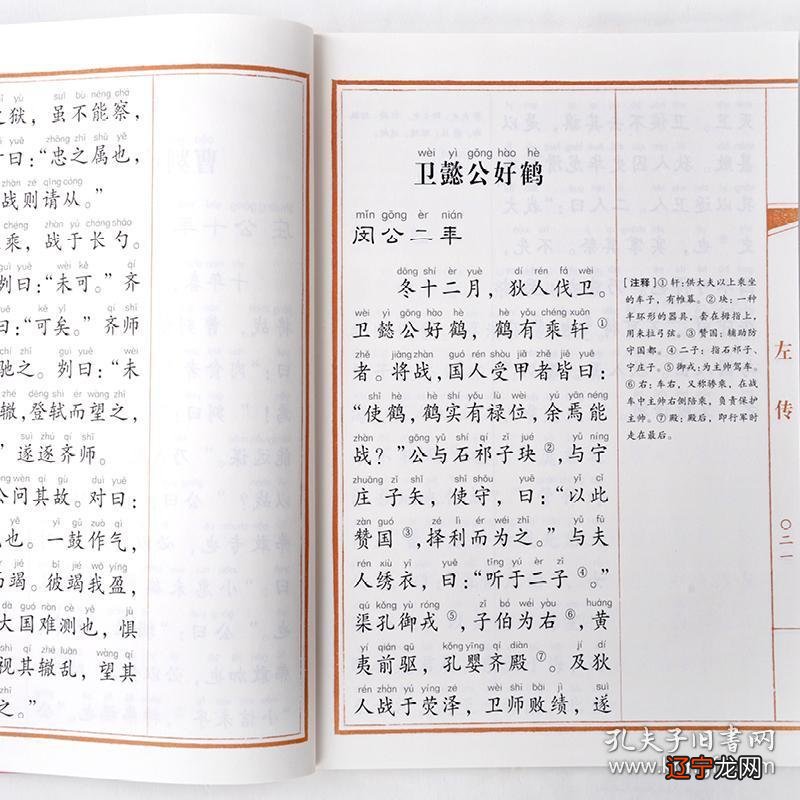 之狱，虽不能察，
对曰：“忠之属也，
战则请从。”
乘，战于长勺。
刿曰：“未可。”齐
曰：“可矣。”齐师
驰之。刿曰：“未
辙，登轼而望之，
”遂逐齐师。
公问其故。对曰：
也。一鼓作气，
而竭。彼竭我盈，
大国难测也，惧
视其辙乱，望其
之。”
wèi yì gōng hào hè
卫懿公好鹤
mǐn gōng èr nián
闵公二年
dōng shí èr yuè dí rén fá wèi
冬十二月，狄人伐卫。
wèi yì gōng hào hè hè yǒu chéng xuān
卫懿公好鹤，鹤有乘轩①
zhě jiāng zhàn guó rén shòu jiǎ zhě jiē yuē
者。将战，国人受甲者皆曰：
shǐ hè hè shí yǒu lù wèi yú yān néng
“使鹤，鹤实有禄位，余焉能
zhàn gōng yǔ shí qí zǐ jué yǔ níng
战？”公与石祁子玦②，与宁
zhuāng zǐ shǐ shǒu yuē yǐ cǐ
庄子矢，使守，曰：“以此
zàn guó zé lì ér wéi zhī yǔ fū
赞国③，择利而为之。”与夫
rén xiù yī yuē tīng yú èr zǐ
人绣衣，曰：“听于二子④。”
qú kǒng yù róng zǐ bó wéi yòu huáng
渠孔御戎⑤，子伯为右⑥，黄
yí qián qū kǒng yīng qí diàn jí dí
夷前驱，孔婴齐殿⑦。及狄
rén zhàn yú yíng zé wèi shī bài jì suì
人战于荧泽，卫师败绩，遂
[注释]①轩：供大夫以上乘坐
的车子，有帷幕。②玦：一种
半环形的器具，套在拇指上，
用来拉弓弦。③赞国：辅助防
守国都。④二子：指石祁子、
宁庄子。⑤御戎：为主帅驾车。
⑥右：车右，又称骖乘，在战
车中主帅右侧陪乘，负责保护
主帅。⑦殿：殿后，即行军时
走在最后。
左传
〇二一
孔夫子旧书网
辽宁龙网